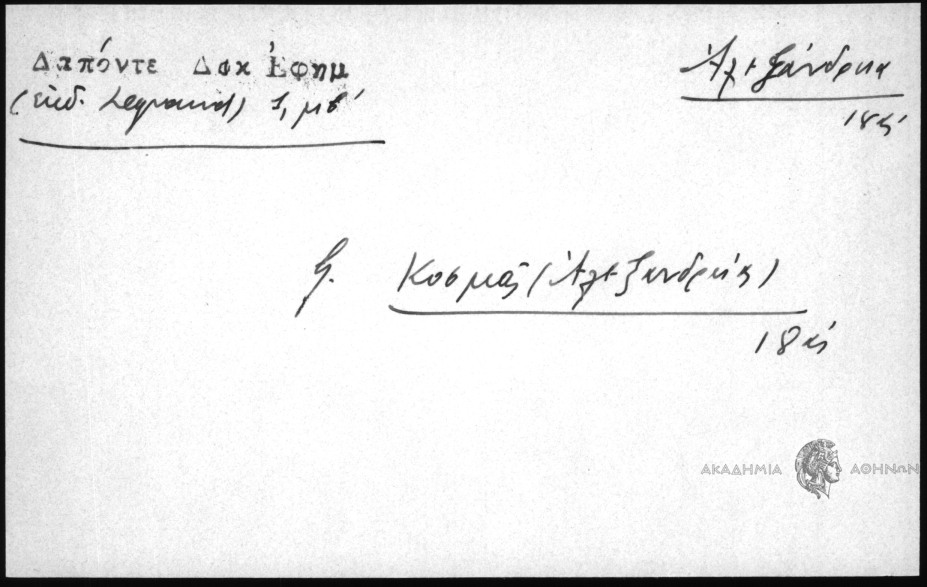 Δαπόντε Δακ Ἐφημ
(ἐκδ. Legrand) 1, μб΄
Ἀλεξάνδρεια
18 αἰ
βλ. Κοσμᾶς (Ἀλεξανδρείας)
18 αἰ
ΑΚΑΔΗΜΙΑ ΑΘΗΝΩΝ